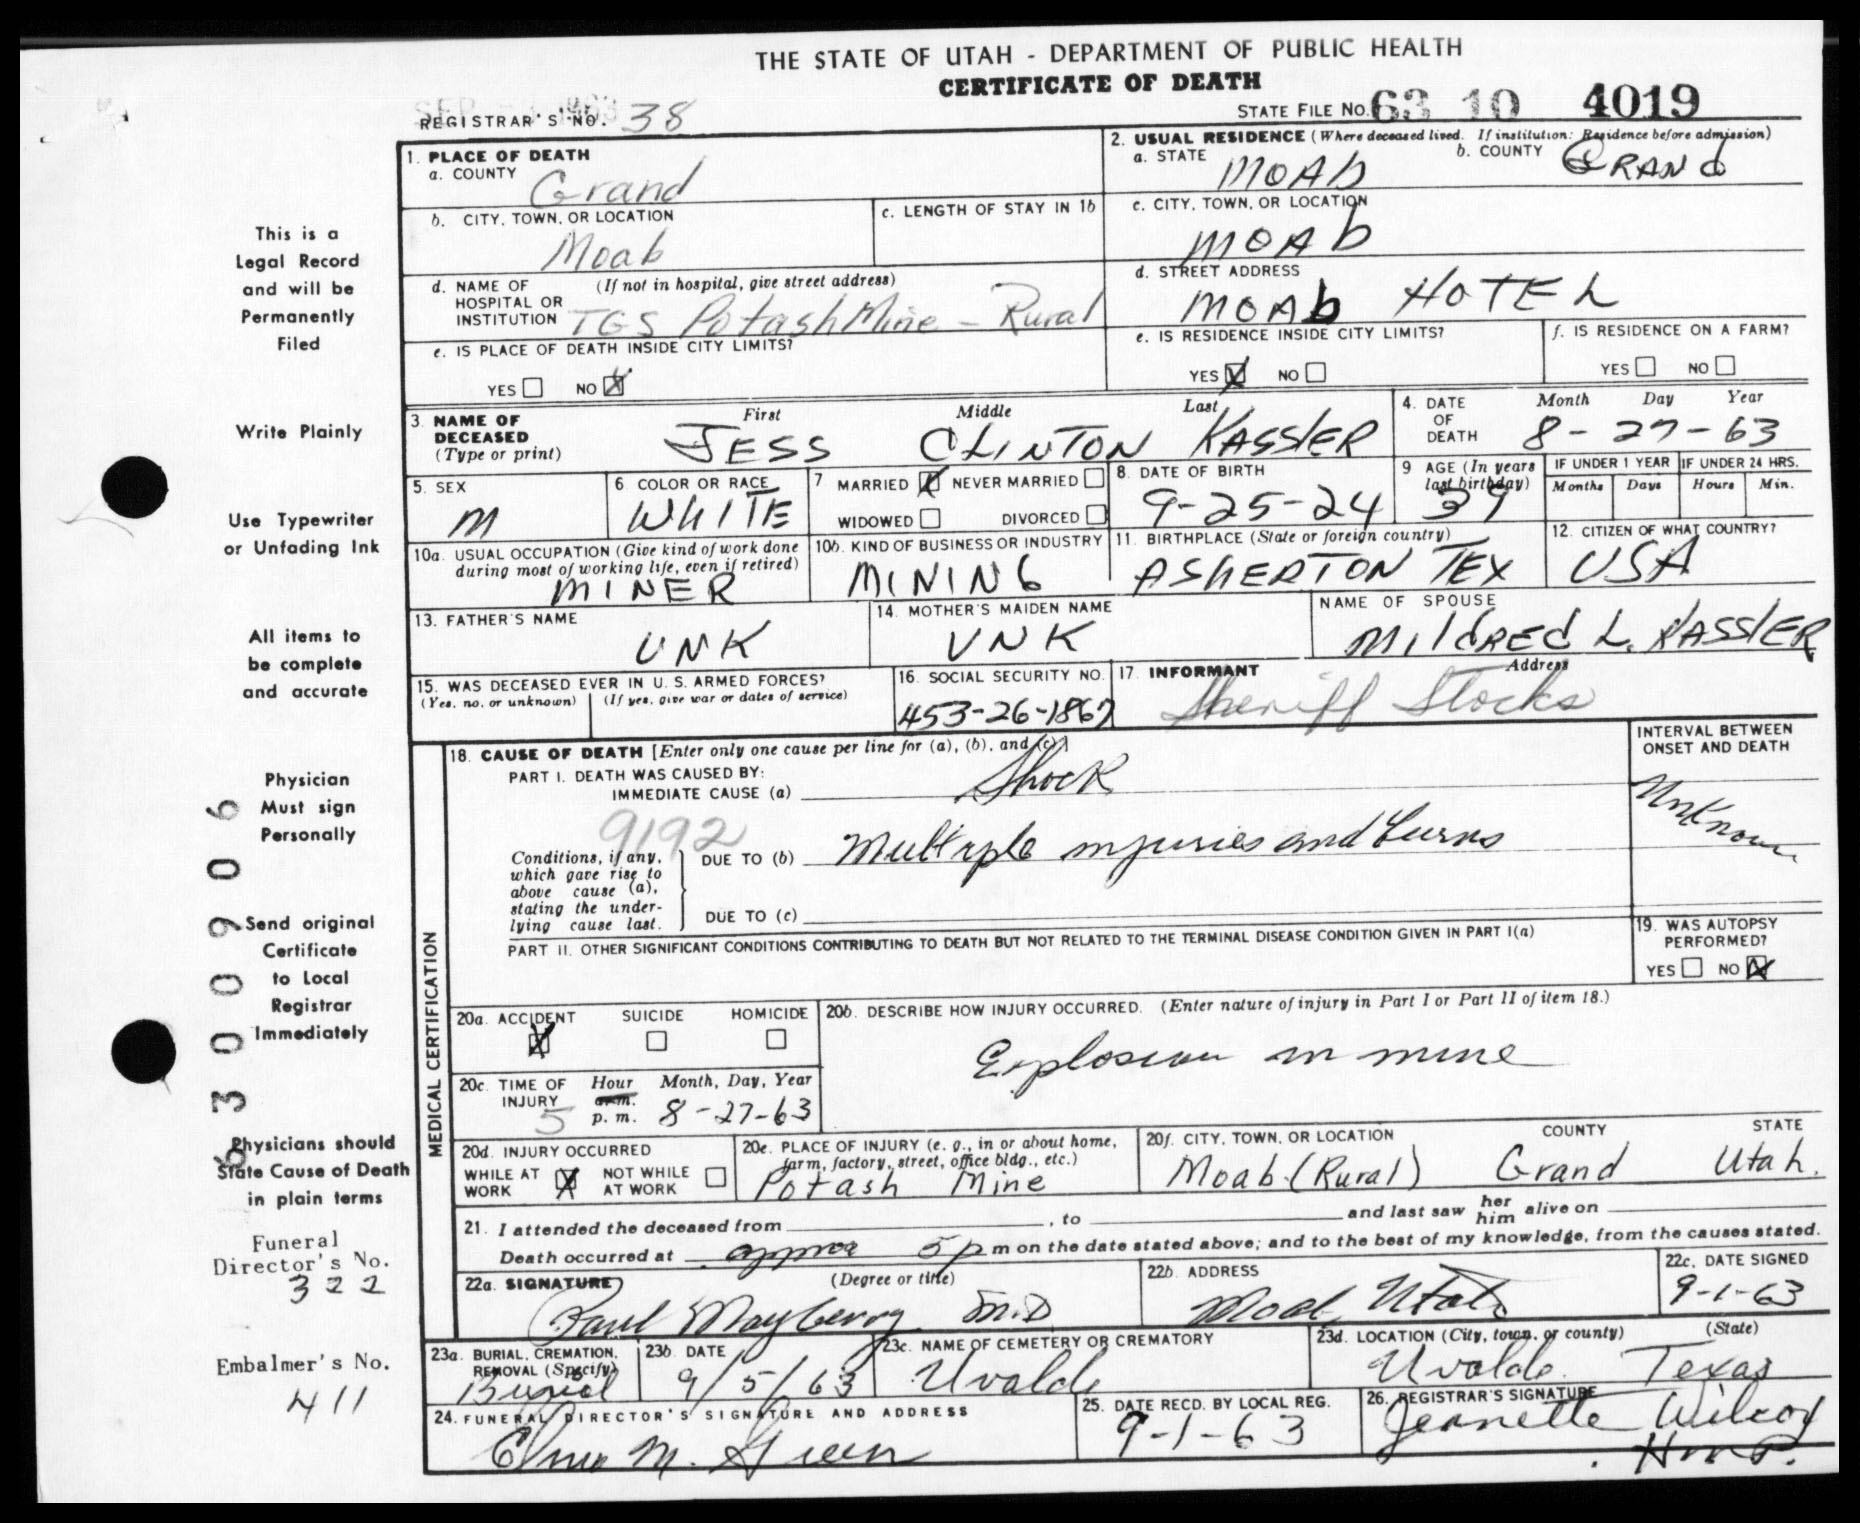 THE STATE OF UTAH - DEPARTMENT OF PUBLIC HEALTH
CERTIFICATE OF DEATH
REGISTRAR'S NO. 38
STATE FILE NO. 63 10 4019
1. PLACE OF DEATH
a. COUNTY Grand
2. USUAL RESIDENCE (Where deceased lived. If institution: Residence before admission)
a. STATE MOAb b. COUNTY GRANd
b. CITY, TOWN, OR LOCATION Moab
c. LENGTH OF STAY IN 1b
c. CITY, TOWN, OR LOCATION MOAb
d. NAME OF HOSPITAL OR INSTITUTION (If not in hospital, give street address) TGS Potash Mine - Rural
d. STREET ADDRESS MOAb HOTEL
e. IS PLACE OF DEATH INSIDE CITY LIMITS?
YES NO X
e. IS RESIDENCE INSIDE CITY LIMITS?
YES X NO
f. IS RESIDENCE ON A FARM?
YES NO
3. NAME OF DECEASED (Type or print)
First Middle Last
JESS CLINTON KASSLER
4. DATE OF DEATH Month Day Year
8-27-63
5. SEX M
6 COLOR OR RACE WHITE
7 MARRIED X NEVER MARRIED
WIDOWED DIVORCED
8. DATE OF BIRTH 9-25-24
9 AGE (In years last birthday) 39
IF UNDER 1 YEAR Months Days
IF UNDER 24 HRS. Hours Min.
10a. USUAL OCCUPATION (Give kind of work done during most of working life, even if retired) MINER
10b. KIND OF BUSINESS OR INDUSTRY MINING
11. BIRTHPLACE (State or foreign country) ASHERTON TEX
12. CITIZEN OF WHAT COUNTRY? USA
13. FATHER'S NAME UNK
14. MOTHER'S MAIDEN NAME UNK
NAME OF SPOUSE MIldREd L. KASSlER
15. WAS DECEASED EVER IN U.S. ARMED FORCES?
(Yes, no, or unknown) (If yes, give war or dates of service)
16. SOCIAL SECURITY NO. 453-26-1867
17 INFORMANT Address
Sheriff Stocks
18. CAUSE OF DEATH [Enter only one cause per line for (a), (b), and (c)]
PART I. DEATH WAS CAUSED BY:
IMMEDIATE CAUSE (a) Shock
9192
Conditions, if any, which gave rise to above cause (a), stating the underlying cause last.
DUE TO (b) Multiple injuries and burns
DUE TO (c)
INTERVAL BETWEEN ONSET AND DEATH
Unknown
PART II. OTHER SIGNIFICANT CONDITIONS CONTRIBUTING TO DEATH BUT NOT RELATED TO THE TERMINAL DISEASE CONDITION GIVEN IN PART I(a)
19. WAS AUTOPSY PERFORMED?
YES NO X
MEDICAL CERTIFICATION
20a. ACCIDENT X SUICIDE HOMICIDE
20b. DESCRIBE HOW INJURY OCCURRED. (Enter nature of injury in Part I or Part II of item 18.)
Explosion in mine
20c. TIME OF INJURY Hour Month, Day, Year
a.m.
5 p.m. 8-27-63
20d. INJURY OCCURRED
WHILE AT WORK X NOT WHILE AT WORK
20e. PLACE OF INJURY (e. g., in or about home, farm, factory, street, office bldg., etc.)
Potash Mine
20f. CITY, TOWN, OR LOCATION COUNTY STATE
Moab (Rural) Grand Utah.
21. I attended the deceased from , to and last saw her him alive on
Death occurred at approx 5p m on the date stated above; and to the best of my knowledge, from the causes stated.
22a. SIGNATURE (Degree or title)
Paul Mayberry M.D
22b. ADDRESS
Moab Utah
22c. DATE SIGNED
9-1-63
23a. BURIAL, CREMATION, REMOVAL (Specify) Burial
23b DATE 9/5/63
23c. NAME OF CEMETERY OR CREMATORY Uvalde
23d. LOCATION (City, town, or county) (State)
Uvalde Texas
24. FUNERAL DIRECTOR'S SIGNATURE AND ADDRESS
Elmo M. Green
25. DATE RECD. BY LOCAL REG.
9-1-63
26. REGISTRAR'S SIGNATURE
Jeanette Wilcox
This is a
Legal Record
and will be
Permanently
Filed
Write Plainly
Use Typewriter
or Unfading Ink
All items to
be complete
and accurate
Physician
Must sign
Personally
Send original
Certificate
to Local
Registrar
Immediately
Physicians should
State Cause of Death
in plain terms
Funeral
Director's No.
322
Embalmer's No.
411
6300906